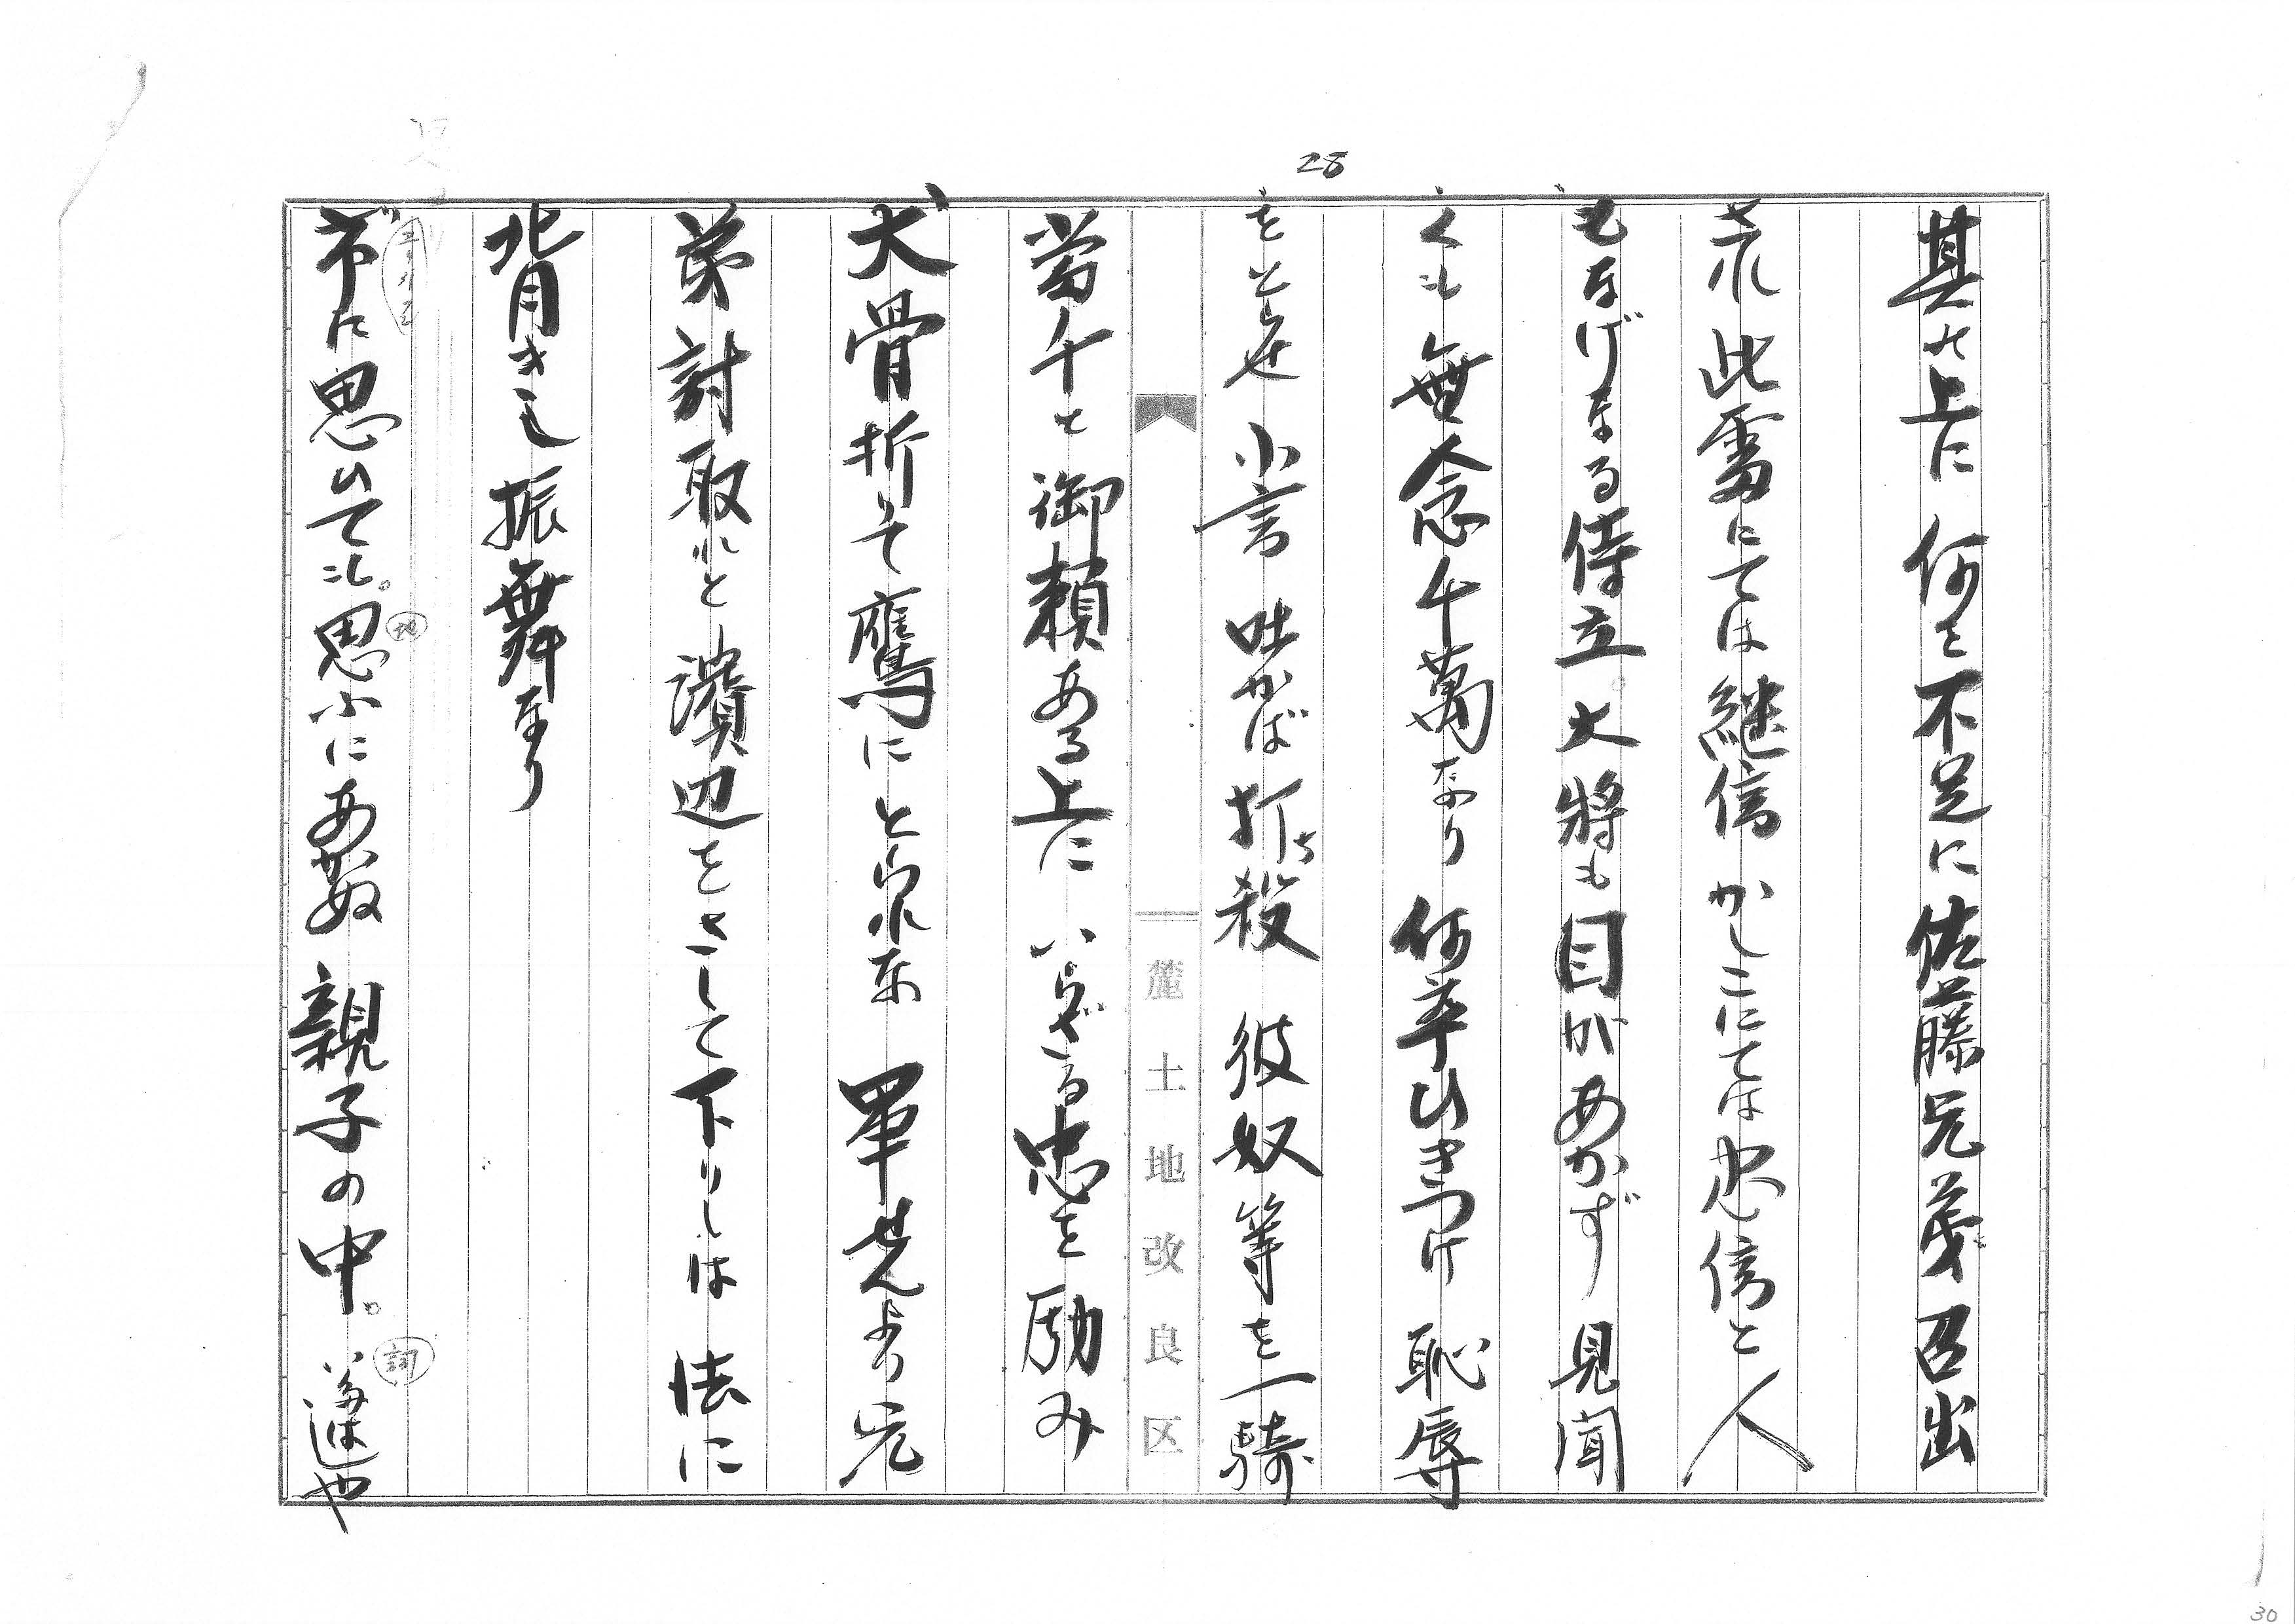 28
其の上に何を不足に佐藤兄弟召出
され此雷にては継信かしこにては忠信と人
もなげなる侍立。大将も目があかず見聞
くも無念千萬なり何卒ひきつけ恥辱
をとらせ小言吐かば打ち殺彼奴等を一騎
當千と御頼ある上にいらざる忠を励み
犬骨折て鷹にとられな軍せんより先
弟討取れと濱辺をさして下りしは法に
背きし振舞なり
爺に思ひてこし。思ふにあかぬ親子の中。
地
詞
や
麓土地改良区
30